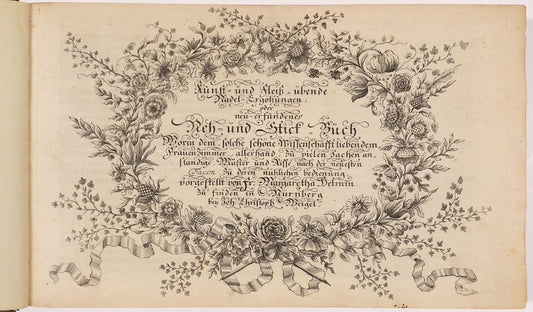 Kunst- und Fleiß-übende
Nadel-Ergötzungen.
oder
neu-erfundenes
Neh- und Stick-Buch
Worin dem, solche schöne Wissenschafft liebendem
Frauenzimmer, allerhand, zu vielen Sachen an-
ständige, Muster und Risse, nach der neuesten
Façon zu deren nützlichen bedienung
vorgestellt von Fr. Margaretha Helmin
zu finden in Nürnberg
bey Joh. Christoph Weigel